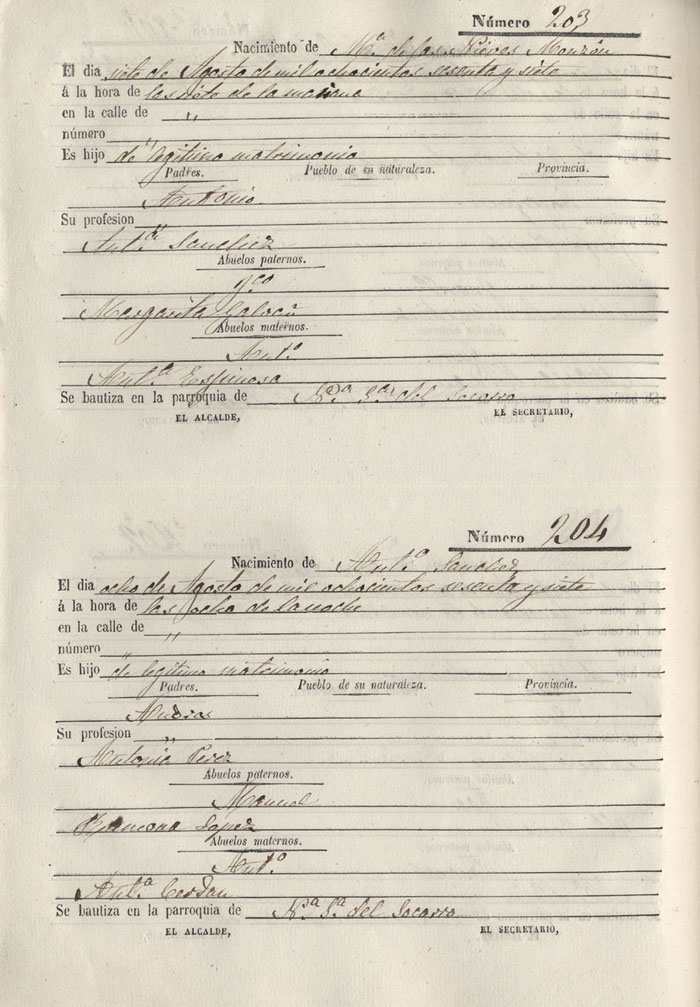 Número 203
Nacimiento de Mª de las Nieves Monzón
El dia siete de Agosto de mil ochocientos sesenta y siete
á la hora de las siete de la mañana
en la calle de "
número "
Es hijo de legitimo matrimonio
Padres. Pueblo de su naturaleza. Provincia.
Antonio
Su profesion
Antª Sanchez
Abuelos paternos.
Margarita Galvañ
Abuelos maternos.
Antº
Antª Espinosa
Se bautiza en la parroquia de Nª Sª del Socorro
EL ALCALDE, EL SECRETARIO,
Número 204
Nacimiento de Antº Sanchez
El dia ocho de Agosto de mil ochocientos sesenta y siete
á la hora de las ocho de la noche
en la calle de "
número "
Es hijo de legitimo matrimonio
Padres. Pueblo de su naturaleza. Provincia.
Andres
Su profesion "
Antonia Perez
Abuelos paternos.
Manuel
Ramona Lopez
Abuelos maternos.
Antº
Antª Cerdan
Se bautiza en la parroquia de Nª Sª del Socorro
EL ALCALDE, EL SECRETARIO,